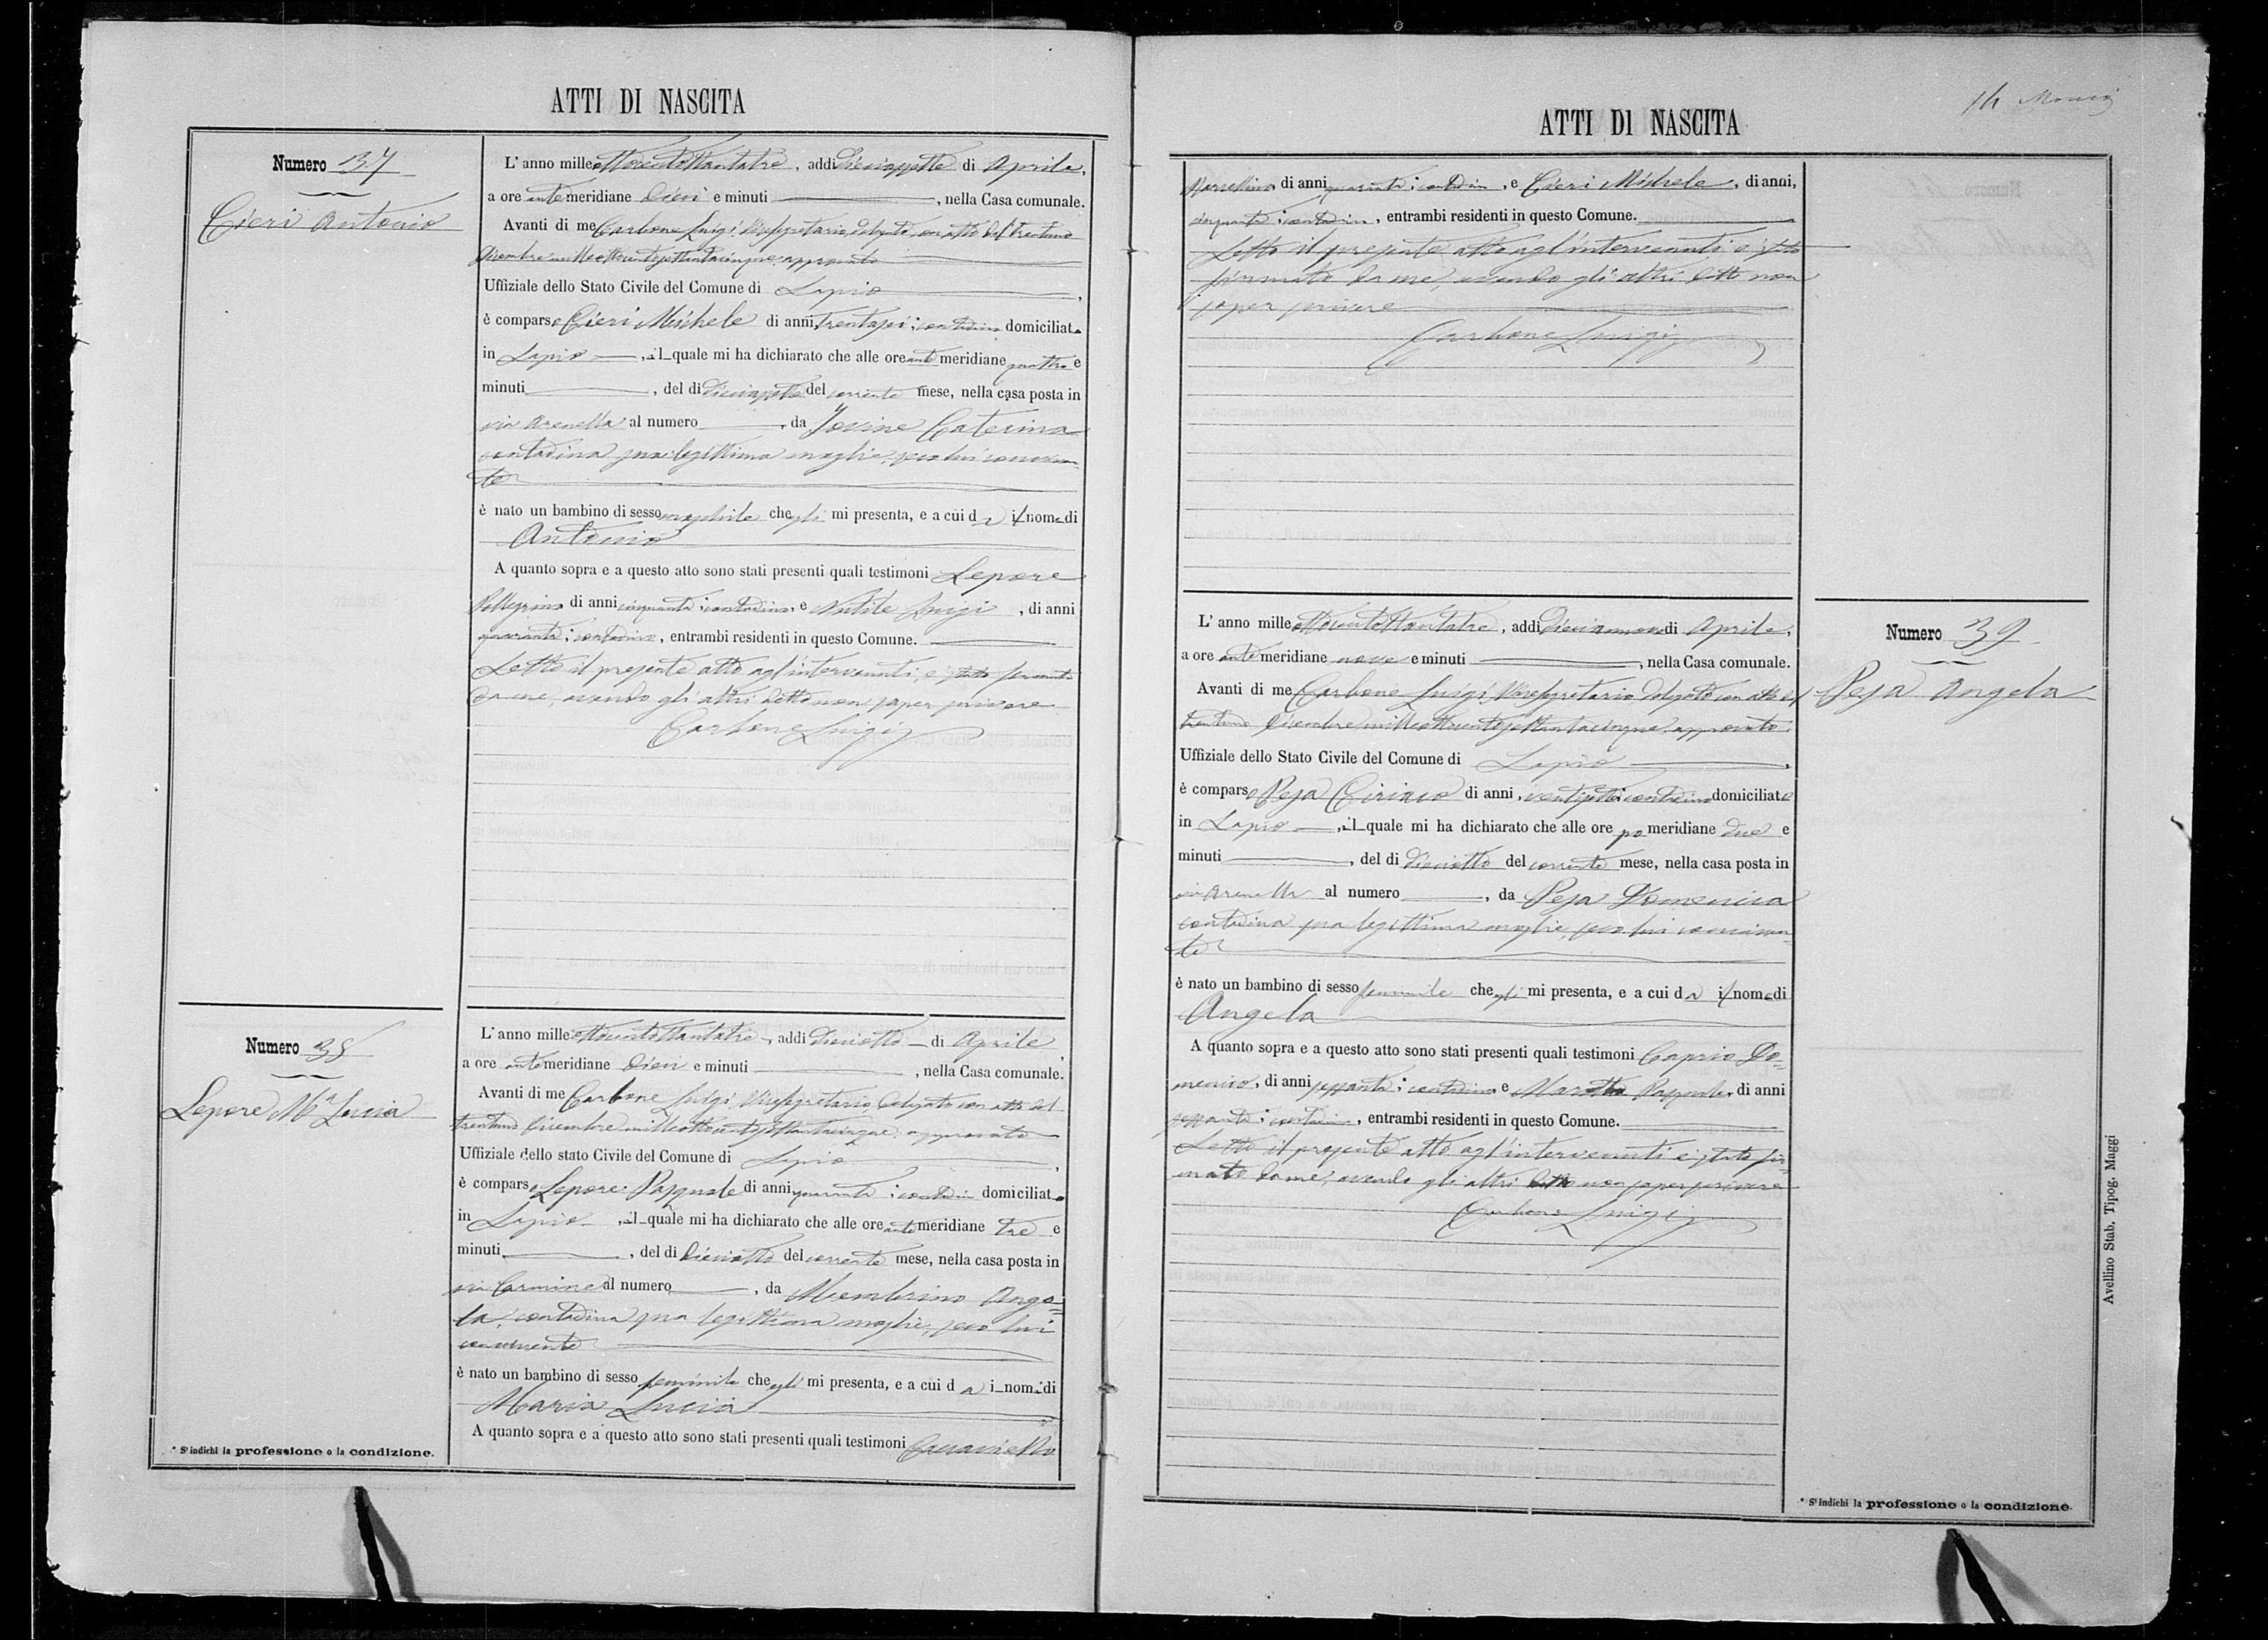 ATTI DI NASCITA
Numero 37
Cieri Antonio
L'anno milleottocentottantatre, addi diciassette di Aprile,
a ore antemeridiane dieci e minuti, nella Casa comunale.
Avanti di me Carbone Luigi Vicesegretario delegato con atto del trentuno
Dicembre milleottocentosettantacinque, approvato
Uffiziale dello Stato Civile del Comune di Lapio,
è comparso Cieri Michele di anni trentasei, contadino domiciliato
in Lapio, il quale mi ha dichiarato che alle ore antemeridiane quattro e
minuti, del dì diciassette del corrente mese, nella casa posta in
via Arenella al numero, da Jovine Caterina
contadina sua legittima moglie, seco lui conviven-
te
è nato un bambino di sesso maschile che egli mi presenta, e a cui dà il nome di
Antonio
A quanto sopra e a questo atto sono stati presenti quali testimoni Lepore
Pellegrino di anni cinquanta, contadino, e Nutile Luigi, di anni
quaranta, contadino, entrambi residenti in questo Comune.
Letto il presente atto agl'intervenuti, è stato firmato
da me, avendo gli altri detto non saper scrivere
Carbone Luigi
Numero 38
Lepore Mª Lucia
L'anno milleottocentottantatre, addi diciotto di Aprile,
a ore antemeridiane dieci e minuti, nella Casa comunale.
Avanti di me Carbone Luigi Vicesegretario delegato con atto del
trentuno Dicembre milleottocentosettantacinque, approvato
Uffiziale dello stato Civile del Comune di Lapio,
è comparso Lepore Pasquale di anni quaranta, contadino domiciliato
in Lapio, il quale mi ha dichiarato che alle ore antemeridiane tre e
minuti, del dì diciotto del corrente mese, nella casa posta in
via Carmine al numero, da Membrino Ange=
la, contadina sua legittima moglie, seco lui
convivente
è nato un bambino di sesso feminile che egli mi presenta, e a cui dà i nome di
Maria Lucia
A quanto sopra e a questo atto sono stati presenti quali testimoni
* S'indichi la professione o la condizione.
ATTI DI NASCITA
14
di anni quaranta, contadino, e Cieri Michele, di anni,
cinquanta, contadino, entrambi residenti in questo Comune.
Letto il presente atto agl'intervenuti è stato
firmato da me, avendo gli altri detto non
saper scrivere
Carbone Luigi
Numero 39
Pesa Angela
L'anno milleottocentottantatre, addi diciannove di Aprile,
a ore antemeridiane nove e minuti, nella Casa comunale.
Avanti di me Carbone Luigi Vicesegretario delegato con atto del
trentuno Dicembre milleottocentosettantacinque, approvato
Uffiziale dello Stato Civile del Comune di Lapio,
è comparso Pesa Ciriaco di anni ventisette, contadino domiciliato
in Lapio, il quale mi ha dichiarato che alle ore pomeridiane due e
minuti, del dì diciotto del corrente mese, nella casa posta in
via Arenella al numero, da Pesa Domenica
contadina sua legittima moglie, seco lui conviven-
te
è nato un bambino di sesso feminile che egli mi presenta, e a cui dà il nome di
Angela
A quanto sopra e a questo atto sono stati presenti quali testimoni Caprio Do=
menico, di anni sessanta, contadino e Marotta Pasquale, di anni
sessanta, contadino, entrambi residenti in questo Comune.
Letto il presente atto agl'intervenuti è stato fir=
mato da me, avendo gli altri detto non saper scrivere
Carbone Luigi
* S'indichi la professione o la condizione.
Avellino Stab. Tipog. Maggi